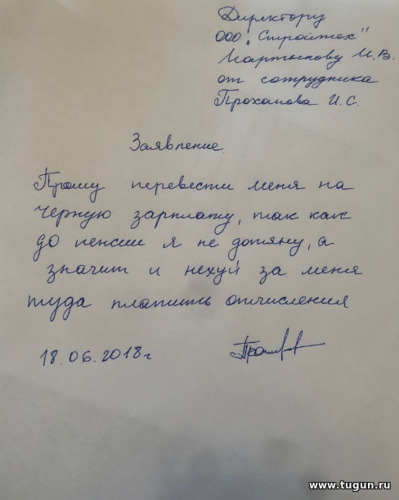 Директору
ООО „Стройтех"
Мартынову И.В.
от сотрудника
Проханова И.С.
Заявление
Прошу перевести меня на
черную зарплату, так как
до пенсии я не дотяну, а
значит и нехуй за меня
туда платить отчисления
18.06.2018г
www.tugun.ru